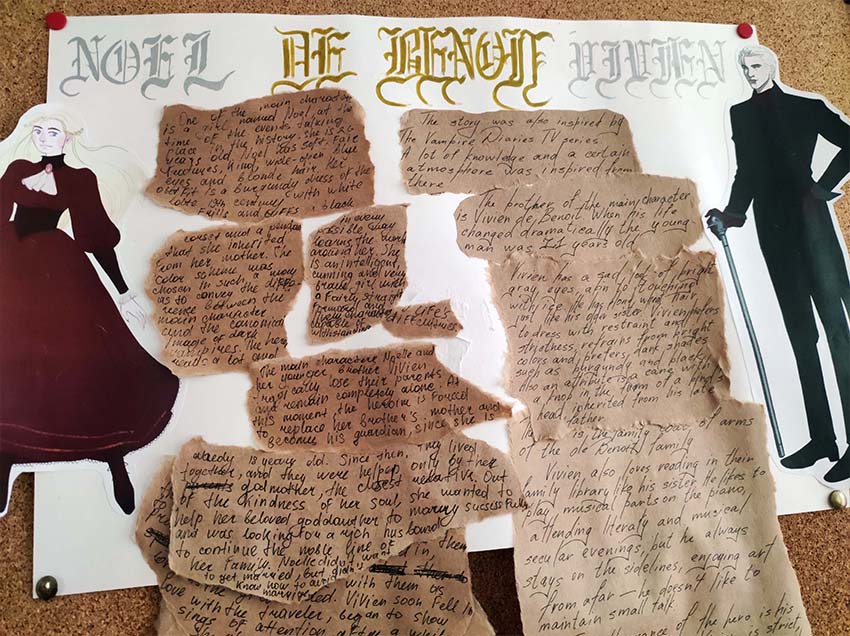 NOEL DE BENOIT VIVIEN
One of the main characters
is a girl named Noel, at the
time of the events talking
place in the history, she is 26
years old, Noel has soft fair
features, kind, wide-open
eyes and blonde hair. Her
outfit is a burgundy dress of the
late 19th century with white
frills and cuffs, a black
corset and a pendant
that she inherited
from her mother. She
color scheme was
chosen in such a way
as to convey the diffe-
rence between the
main character
and the canonical
image of dark
vampires. The hero
reads a lot and
in every
possible way
learns the world
around her. She
is an intelligent,
cunning and very
brave girl with
a fairly straight
forward and
lively character
capable of
withstanding
life's
difficulties.
The main characters Noelle and
her younger brother Vivien
tragically lose their parents
and remain completely alone. At
this moment the heroine is forced
to replace her brother's mother and
become his guardian, since she is
already 18 years old. Since then, they lived
together, and they were helped only by their
godmother, the closest relative. Out
of the kindness of her soul, she wanted to
help her beloved goddaughter to marry successfully
and was looking for a rich husband
to continue the noble line of
her family. Noelle didn't want
to get married, but didn't
know how to
with them as
Vivien soon fell in
love with the traveler, began to show
signs of attention, after a while
The story was also inspired by
The Vampire Diaries TV series
A lot of knowledge and a certain
atmosphere was inspired from
there
The brother of the main character
is Vivien de Benoit. When his life
changed dramatically the young
man was 11 years old
Vivien has a sad look of bright
gray eyes,
with rige. He has long, wred hair,
like his older sister. Vivien prefers
to dress with restraint and
strictness, refrains from bright
colors and prefers dark shades
such as burgundy and black.
Also an attribute is a cane with
a knob in the form of a bird's
head, inherited from his late
father.
is the family coat of arms
of the de Benoit family
Vivien also loves reading in their
family library like his sister. He likes to
play musical parts on the piano,
attending literaly and musical
secular evenings, but he always
stays on the sidelines, enjoying art
from afar – he doesn't like to
maintain small talk
of the hero is his
is strict,